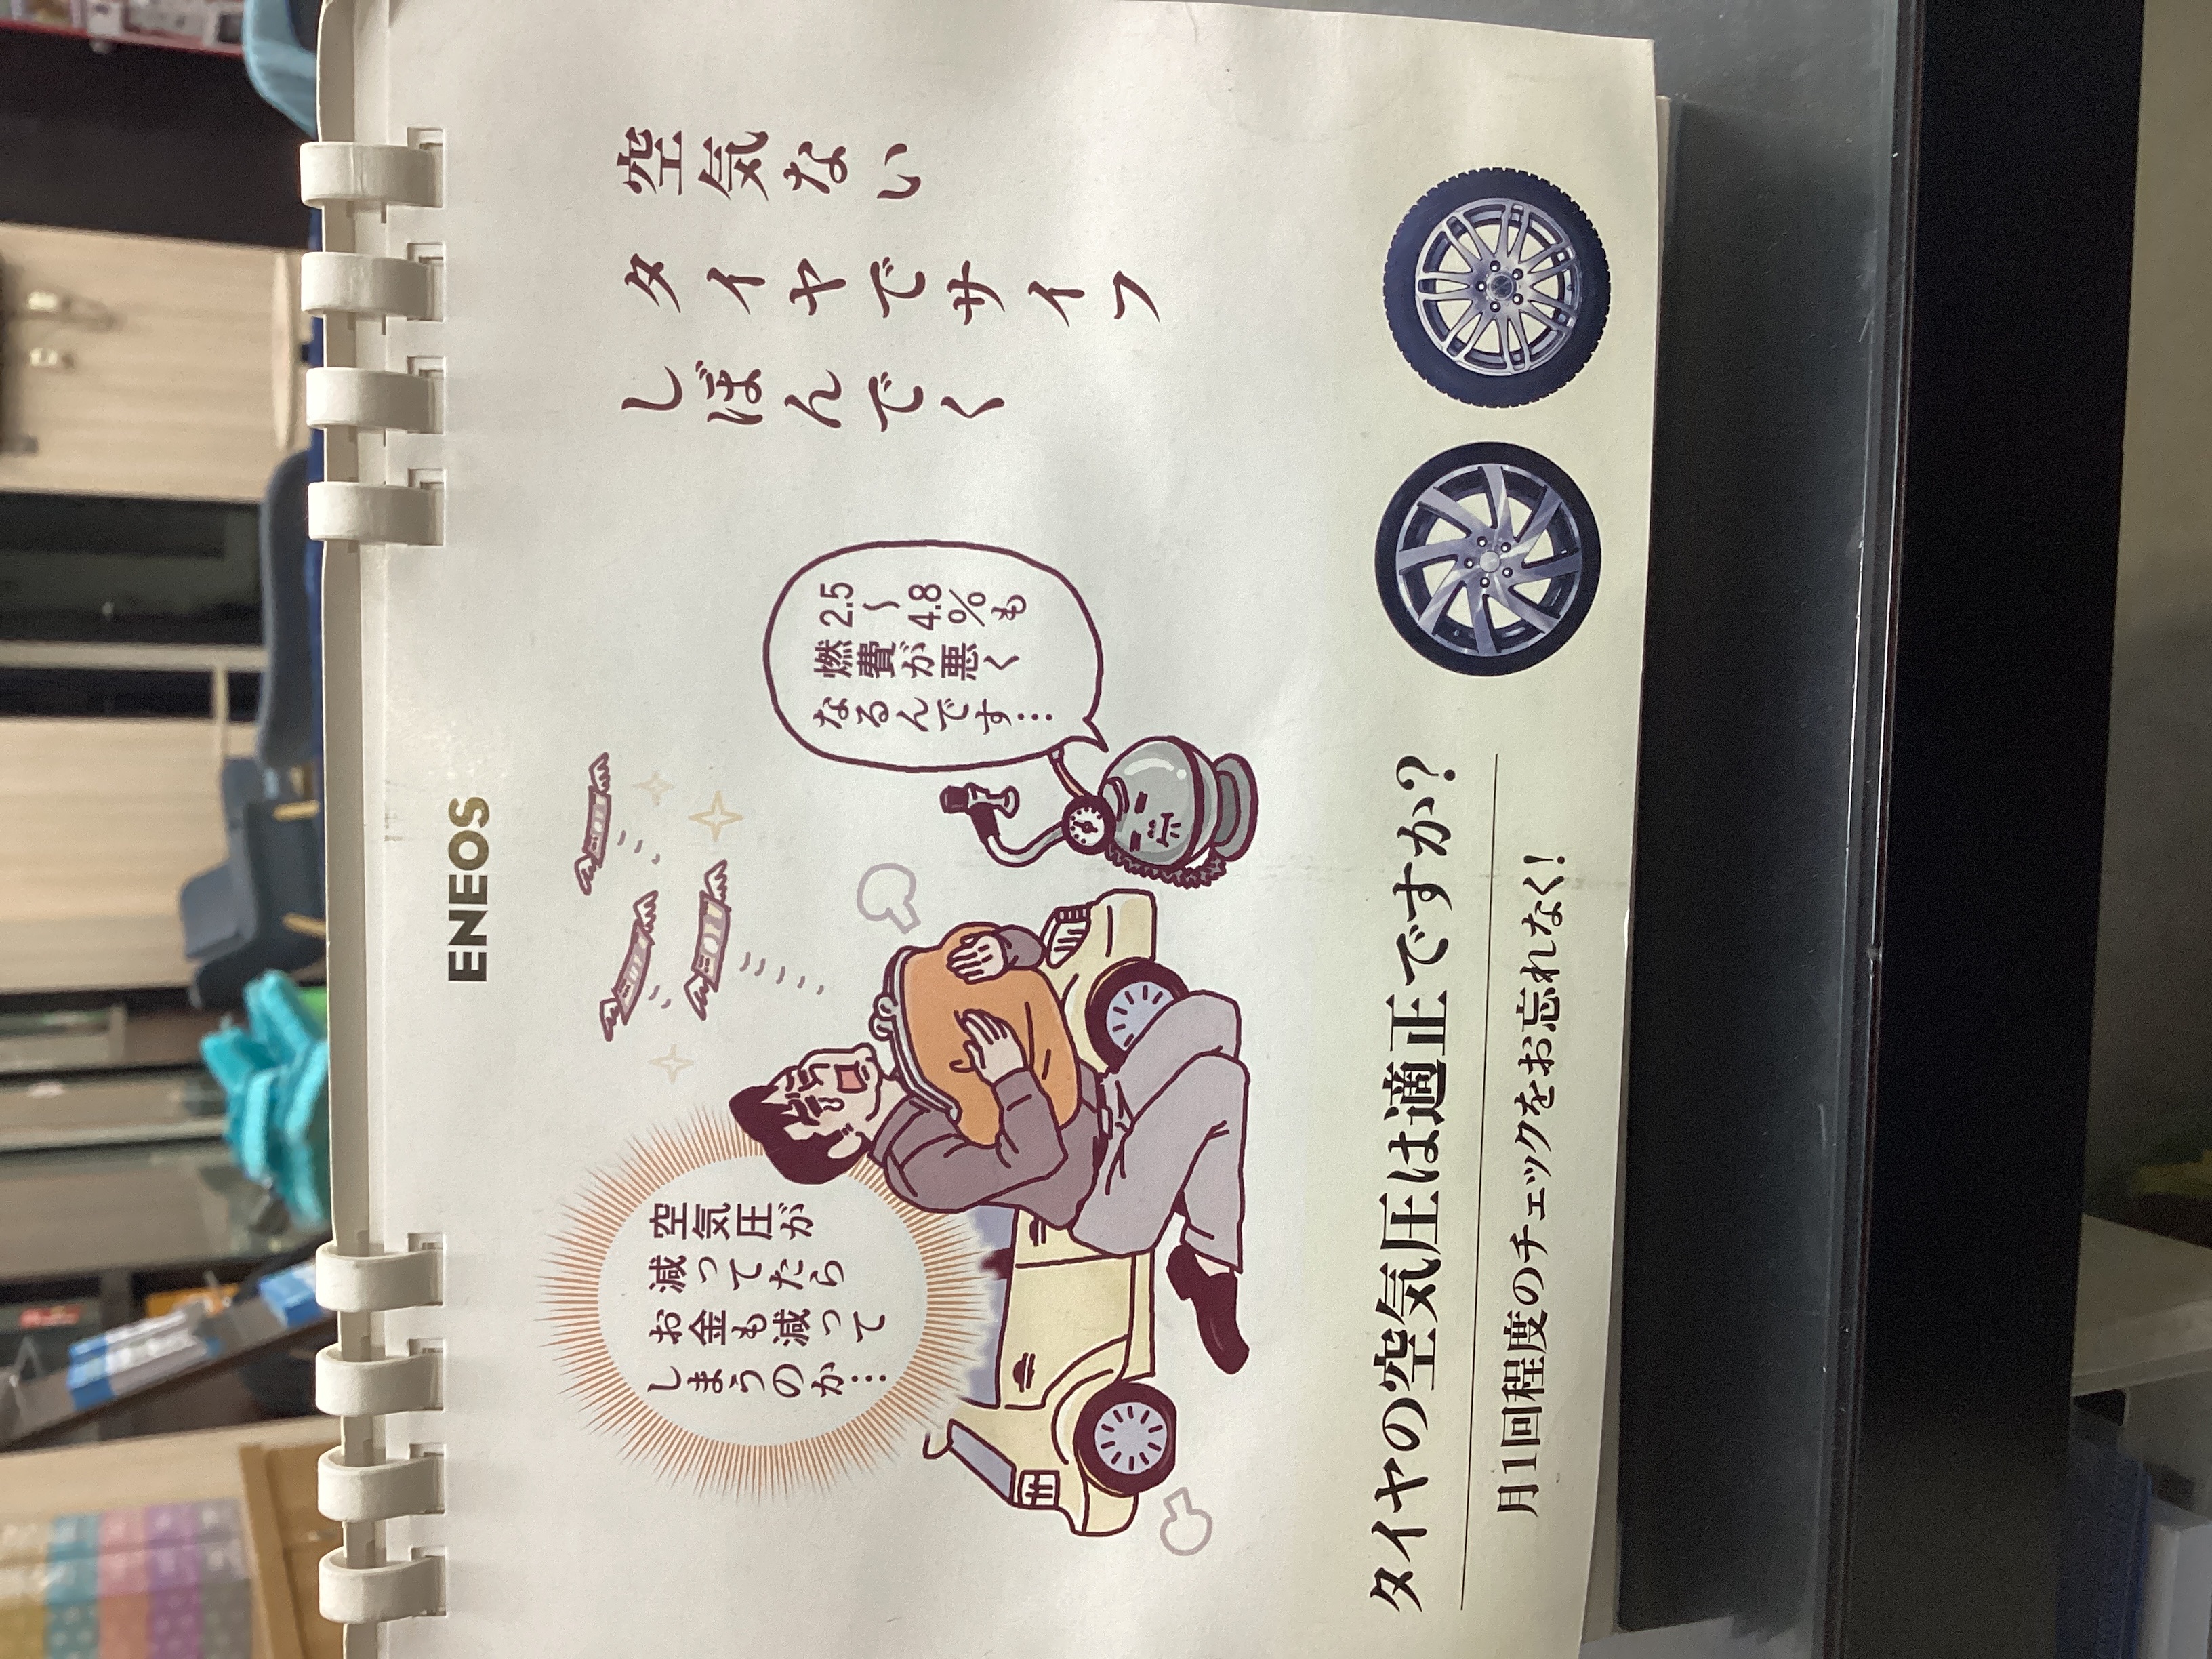 ENEOS
空気ない
タイヤでサイフ
しぼんでく
2.5〜4.8%も
燃費が悪く
なるんです…
空気圧が
減ってたら
お金も減って
しまうのか…
タイヤの空気圧は適正ですか?
月1回程度のチェックをお忘れなく!